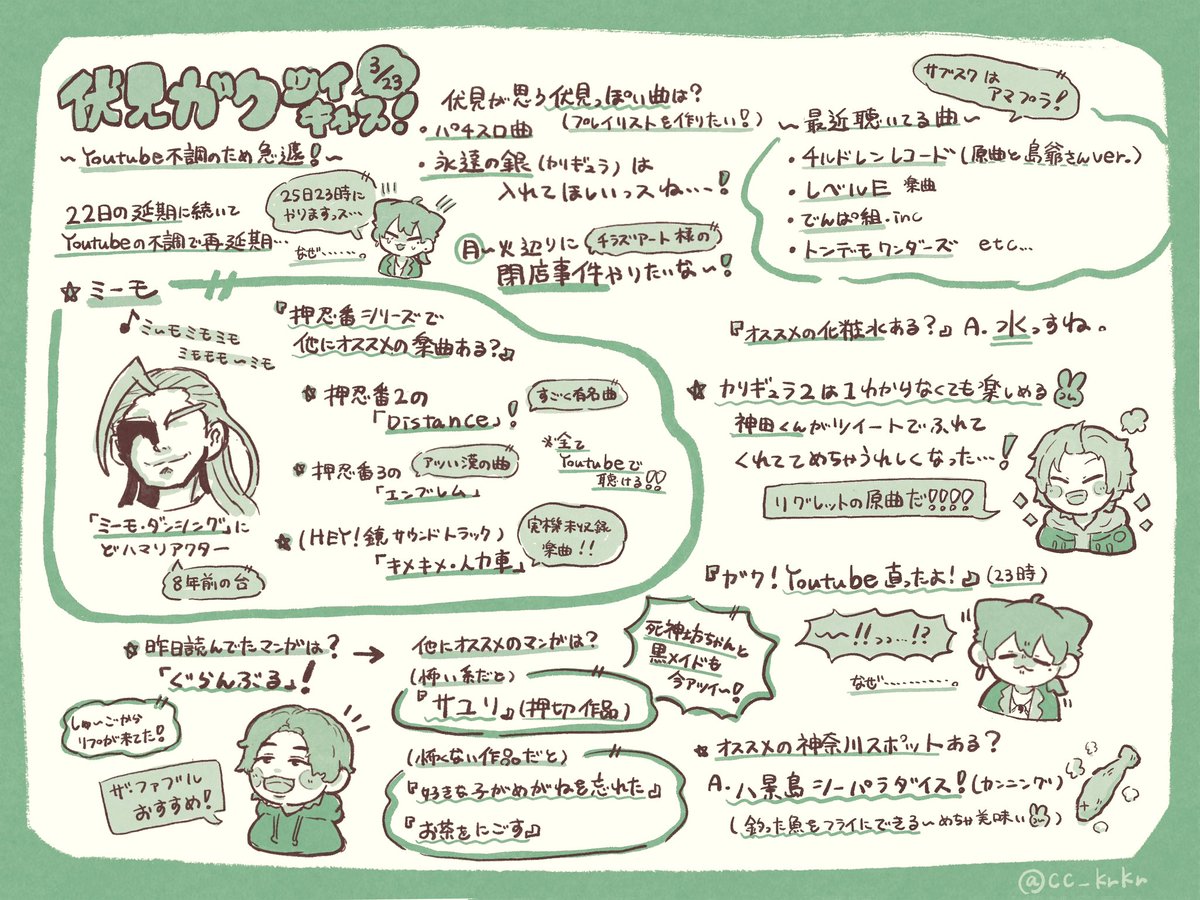 伏見ガクツイキャス!
3/23
～Youtube不調のため急遽!～
22日の延期に続いて
Youtubeの不調で再延期…
25日23時に
やりますッス…
なぜ………。
伏見が思う伏見っぽい曲は?
(プレイリストを作りたい!)
・パチスロ曲
・永遠の銀(カリギュラ)は
入れてほしいっスね…!
月～火辺りに
チラズアート様の
閉店事件やりたいな～!
サブスクは
アマプラ!
～最近聴いてる曲～
・チルドレンレコード(原曲と島爺さんver.)
・レベルE 楽曲
・でんぱ組.inc
・トンデモワンダーズ etc…
☆ミーモ
♪ミぃモミモミモ
ミモモモ～ミモ
「ミーモ・ダンシング」に
どハマリアクター
8年前の台
『押忍番シリーズで
他にオススメの楽曲ある?』
☆押忍番2の
「Distance」!
すごく有名曲
☆押忍番3の
「エンブレム」
アツい漢の曲
※全て
Youtubeで
聴ける!!
☆(HEY!鏡サウンドトラック)
「キメキメ・人力車」
実機未収録
楽曲!!
『オススメの化粧水ある?』A.水っすね。
☆カリギュラ2は1わからなくても楽しめる
神田くんがツイートでふれて
くれててめちゃうれしくなった…!
リグレットの原曲だ!!!!
『ガク!Youtube直ったよ!』(23時)
～～!!ッっ…!?
なぜ…………。
☆昨日読んでたマンガは?
「ぐらんぶる」!
しゅーごから
リプが来てた!
ザ・ファブル
おすすめ!
→
他にオススメのマンガは?
(怖い系だと)
『サユリ』(押切作品)
(怖くない作品だと)
『好きな子がめがねを忘れた』
『お茶をにごす』
死神坊ちゃんと
黒メイドも
今アツイ～!
☆オススメの神奈川スポットある?
A.八景島シーパラダイス!(カンニング)
(釣った魚をフライにできる～めちゃ美味い)
@cc_krkr